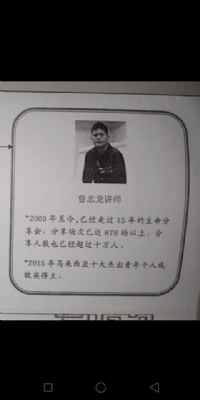 曾志龙讲师
*2003 年至今,已经走过 15 年的生命分
享会，分享场次已达 878 场以上，分
享人数也已经超过十万人。
*2015 年马来西亚十大杰出青年个人成
就奖得主。